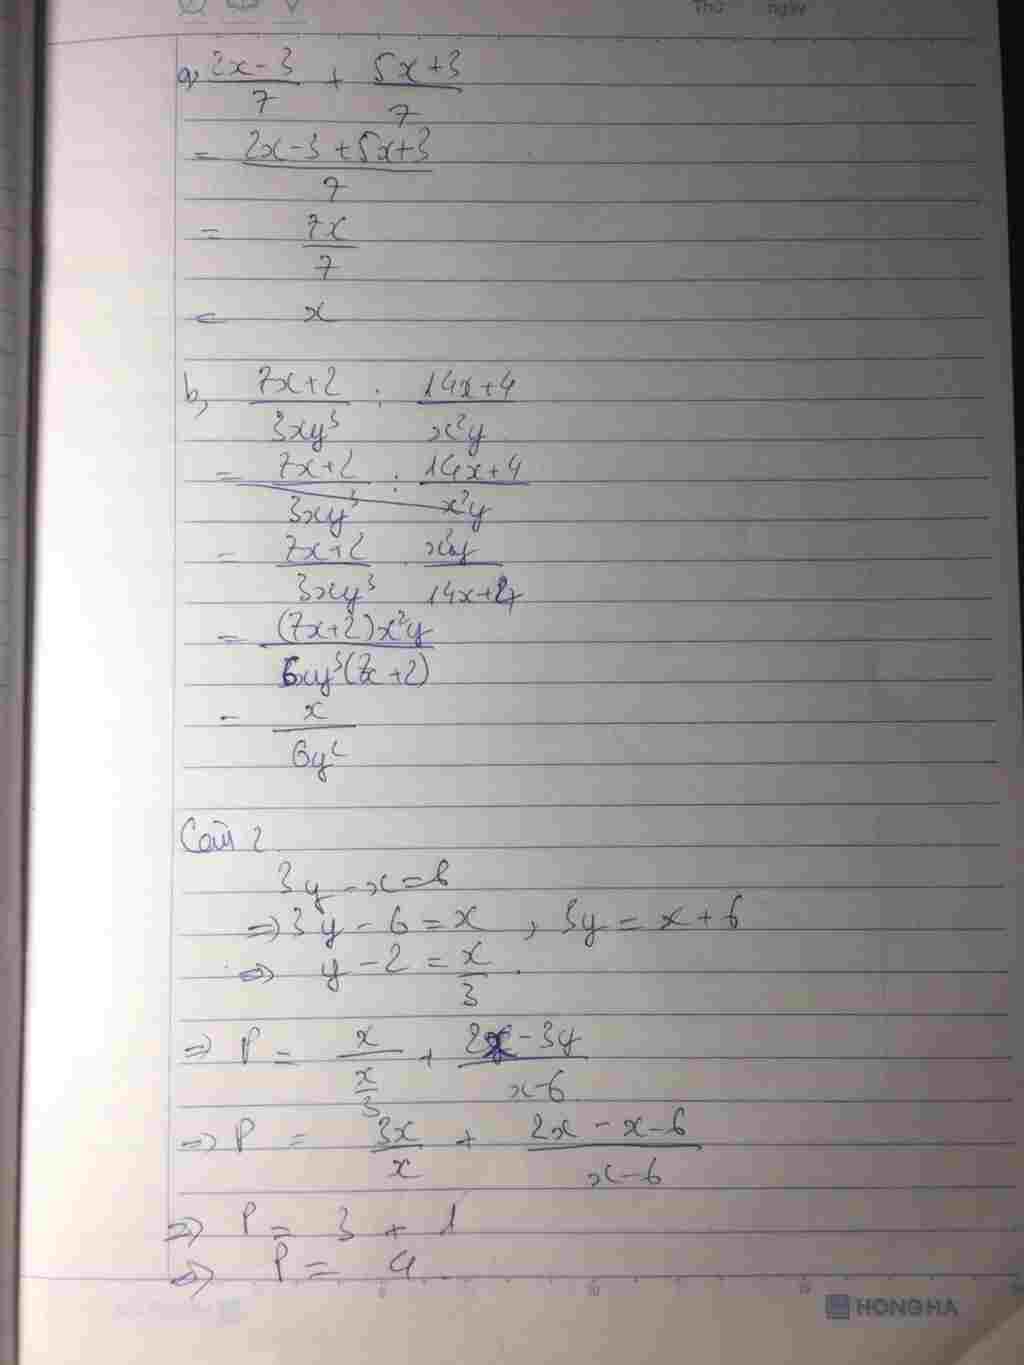 Thứ ngày
a, \frac{2x-3}{7} + \frac{5x+3}{7}
= \frac{2x-3+5x+3}{7}
= \frac{7x}{7}
= x
b, \frac{7x+2}{3xy^3} : \frac{14x+4}{x^2y}
= \frac{7x+2}{3xy^3} : \frac{14x+4}{x^2y}
= \frac{7x+2}{3xy^3} . \frac{x^2y}{14x+4}
= \frac{(7x+2)x^2y}{6xy^3(7x+2)}
= \frac{x}{6y^2}
Câu 2
3y - x = 6
=> 3y - 6 = x , 3y = x + 6
=> y - 2 = \frac{x}{3} .
=> P = \frac{x}{\frac{x}{3}} + \frac{2x - 3y}{x-6}
=> P = \frac{3x}{x} + \frac{2x - x - 6}{x-6}
=> P = 3 + 1
=> P = 4
HONG HA